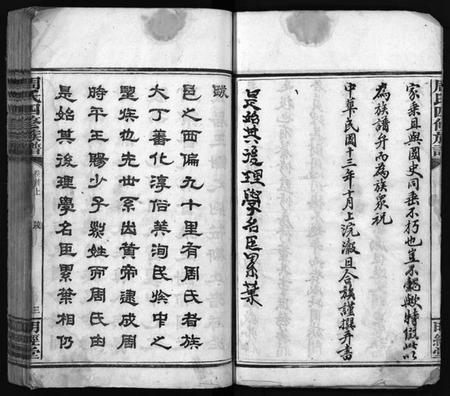 家乘且與國史同垂不朽也豈不懿歟特假此以
為族譜弁而為族衆祝
中華民國十三年十月上浣澈且合族謹撰并書
是始其後理學名臣累葉
周氏四修族譜
明經堂
跋
邑之西偏九十里有周氏者族
大丁蕃化淳俗美洵民族中之
望族也先世系出黃帝逮成周
時平王賜少子烈姓而周氏由
是始其後理學名臣累葉相仍
周氏四修族譜
卷首上
跋
三
明經堂